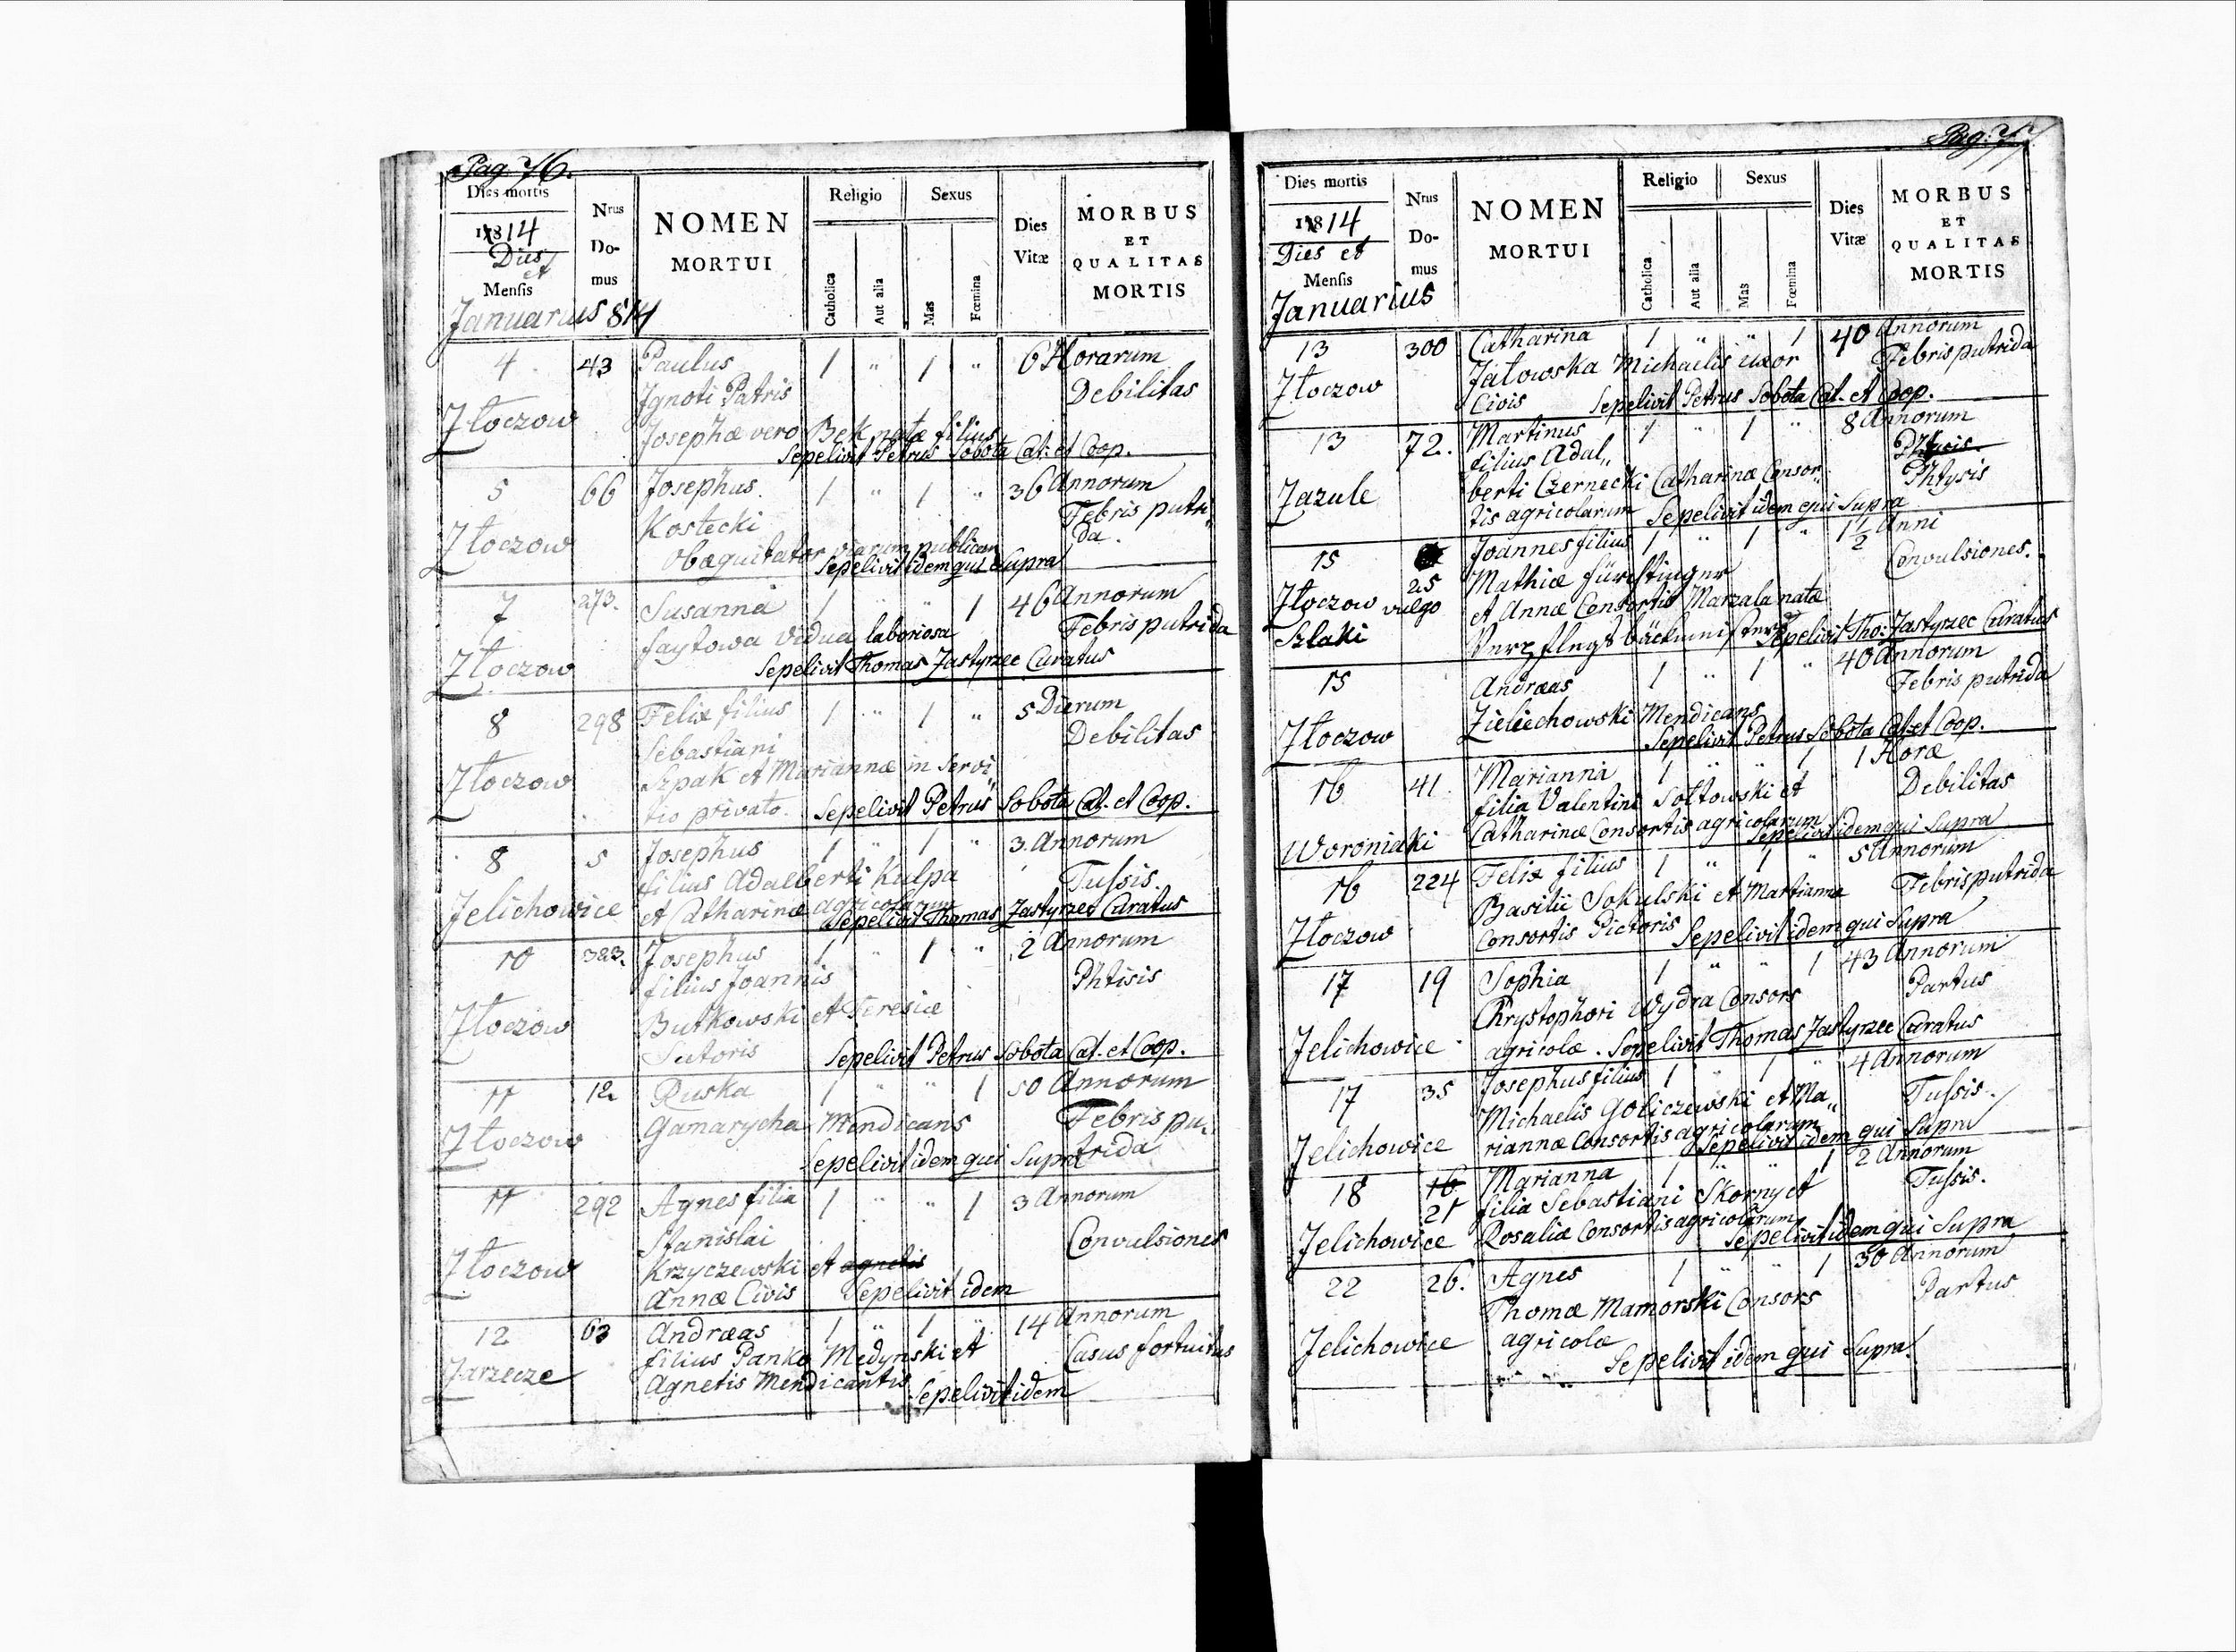 Pag. 76.
Dies mortis
1814
Dies
et
Mensis
Januarius 814
Nrus
Do-
mus
NOMEN
MORTUI
Religio
Catholica
Aut alia
Sexus
Mas
Fœmina
Dies
Vitæ
MORBUS
ET
QUALITAS
MORTIS
4 43 Paulus 1 " 1 " 6 Horarum
Ignoti Patris Debilitas
Złoczow
Josephæ vero Bek natæ filius
Sepelivit Petrus Sobota Cat. et Coop.
5 66 Josephus 1 " 1 " 36 Annorum
Kostecki Febris putri„
Złoczow da.
Obæquitator viarum publicar
Sepelivit idem qui Supra
7 273. Susanna 1 " " 1 46 Annorum
faytowa vidua laboriosa Febris putrida
Złoczow Sepelivit Thomas Zastyrzec Curatus
8 298 Felix filius 1 " 1 " 5 Dierum
Sebastiani Debilitas
Złoczow Szpak et Mariannæ in Servi„
tio privato. Sepelivit Petrus Sobota Cat. et Coop.
8 5 Josephus 1 " 1 " 3. Annorum
filius Adalberti Kulpa Tussis.
Jelichowice et Catharinæ agricolarum
Sepelivit Thomas Zastyrzec Curatus
10 323. Josephus 1 " 1 " 2 Annorum
filius Joannis Phtisis
Złoczow Butkowski et Teresiæ
Sutoris Sepelivit Petrus Sobota Cat. et Coop.
11 12. Ruska 1 " " 1 50 Annorum
Złoczow Gamarycha Mendicans Febris pu„
Sepelivit idem qui Supra trida
11 292 Agnes filia 1 " " 1 3 Annorum
Stanislai Convulsiones
Złoczow Krzyczewski et agnetis
Annæ Civis Sepelivit idem
12 63 Andræas 1 " 1 " 14 Annorum
filius Panko Medynski et Casus fortuitus
Zarzecze Agnetis Mendicantis
Sepelivit idem
Pag: 77.
Dies mortis
1814
Dies et
Mensis
Januarius
Nrus
Do-
mus
NOMEN
MORTUI
Religio
Catholica
Aut alia
Sexus
Mas
Fœmina
Dies
Vitæ
MORBUS
ET
QUALITAS
MORTIS
13 300 Catharina 1 " " 1 40 Annorum
Złoczow Jatowska Michaelis uxor Febris putrida
Civis Sepelivit Petrus Sobota Cat. et Coop.
13 72. Martinus 1 " 1 " 8 Annorum
filius Adal„ Phtysis
Zazule berti Czernecki Catharinæ Consor„ Phtysis
tis agricolarum Sepelivit idem qui Supra
15 Joannes filius 1 " 1 " 1 1/2 Anni
25 Mathiæ fürstinger Convulsiones.
Złoczow vulgo et Annæ Consortis Marzala natæ
Szlaki Verpflegsbäckmeisters Sepelivit Tho: Zastyrzec Curatus
15 Andræas 1 " 1 " 40 Annorum
Złoczow Zieliechowski Mendicans Febris putrida
Sepelivit Petrus Sobota Cat. et Coop.
16 41. Marianna 1 " " 1 1 Horæ
filia Valentini Sołtowski et Debilitas
Woroniaki Catharinæ Consortis agricolarum
Sepelivit idem qui Supra
16 224 Felix filius 1 " 1 " 5 Annorum
Basilii Sokulski et Mariannæ Febris putrida
Złoczow Consortis Pictoris Sepelivit idem qui Supra
17 19 Sophia 1 " " 1 43 Annorum
Chrystophori Wydra Consors Partus
Jelichowice agricolæ. Sepelivit Thomas Zastyrzec Curatus
17 35 Josephus filius 1 " 1 " 4 Annorum
Michaelis Goliczewski et Ma„ Tussis.
Jelichowice riannæ Consortis agricolarum
Sepelivit idem qui Supra
18 16 Marianna 1 " " 1 2 Annorum
21 filia Sebastiani Skorny et Tussis.
Jelichowice Rosaliæ Consortis agricolarum
Sepelivit idem qui Supra
22 26. Agnes 1 " " 1 30 Annorum
Thomæ Mamorski Consors Partus
Jelichowice agricolæ
Sepelivit idem qui Supra.